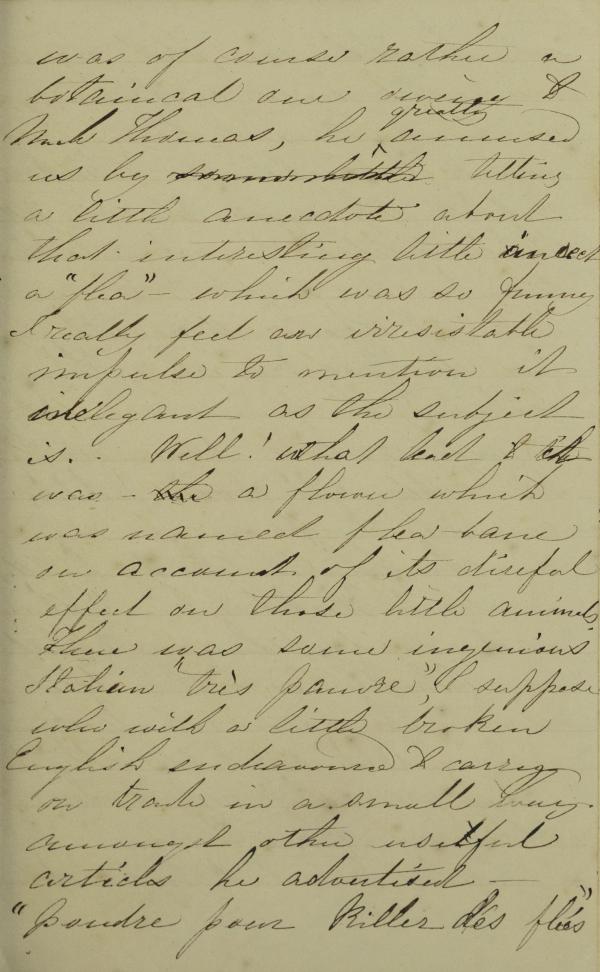 was of course rather a
botanical one owing to
Uncle Thomas, he greatly amused
us by telling
a little anecdote about
that interesting little insect
a "flea" - which was so funny
I really feel an irresistable
impulse to mention it
inelegant as the subject
is. Well! what lead to it
was - a flower which
was named flea-bane
on account of its direful
effect on those little animals
There was some ingenious
Italian "très pauvre", I suppose
who with a little broken
English endeavoured to carry
on trade in a small way.
amongst other useful
articles he advertised -
"poudre pour killer dés fleés"